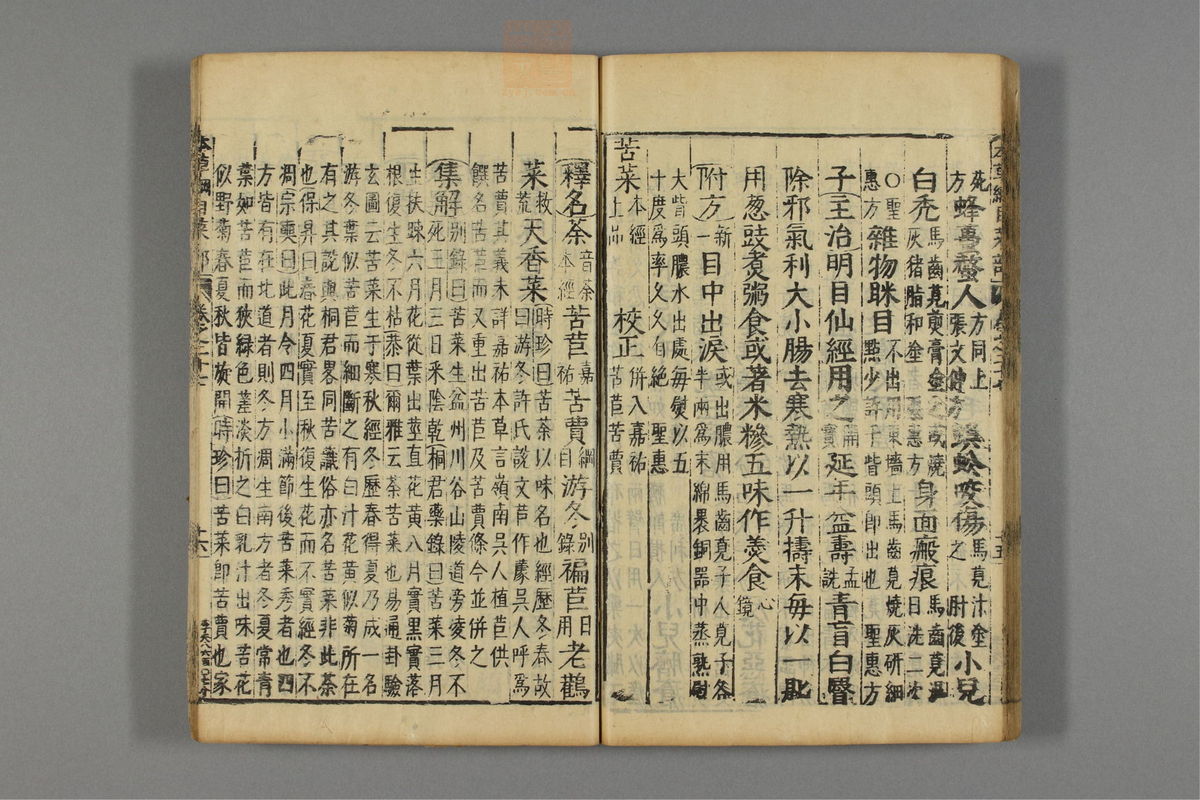 死方蜂蠆螫人方同上張文仲方蜈蚣咬傷馬莧汁塗之肘後小兒
白禿馬齒莧膏塗之或燒灰猪脂和塗聖惠方身面瘢痕馬齒莧湯日洗二次
○聖惠方雜物眯目不出用東墻上馬齒莧燒灰研細點少許于眥頭即出也聖惠方
子主治明目仙經用之開寶延年益壽孟詵青盲白瞖
除邪氣利大小腸去寒熱以一升擣末每以一匙
用葱豉煮粥食或著米糝五味作羮食心鏡
附方新一目中出淚或出膿用馬齒莧子人莧子各半兩爲末綿裹銅器中蒸熟熨
大眥頭膿水出處每熨以五十度爲率久久自絕聖惠
苦菜本經上品校正併入嘉祐苦苣苦蕒
釋名荼音荼本經苦苣嘉祐苦蕒綱目游冬别錄褊苣日用老鸛
菜救荒天香菜時珍曰苦荼以味名也經歷冬春故曰游冬許氏說文苣作䕮吳人呼爲
苦蕒其義未詳嘉祐本草言嶺南吳人植苣供饌名苦苣而又重出苦苣及苦蕒條今並併之
集解别錄曰苦菜生益州川谷山陵道旁凌冬不死三月三日采陰乾桐君藥錄曰苦菜三月
生扶疎六月花從葉出莖直花黄八月實黑實落根復生冬不枯恭曰爾雅云荼苦菜也易通卦驗
玄圖云苦菜生于寒秋經冬歷春得夏乃成一名游冬葉似苦苣而細斷之有白汁花黄似菊所在
有之其說與桐君畧同苦䕮俗亦名苦菜非此荼也保昇曰春花夏實至秋復生花而不實經冬不
凋宗奭曰此月令四月小滿節後苦菜秀者也四方皆有在北道者則冬方凋生南方者冬夏常青
葉如苦苣而狹緑色差淡折之白乳汁出味苦花似野菊春夏秋皆旋開時珍曰苦菜即苦蕒也家